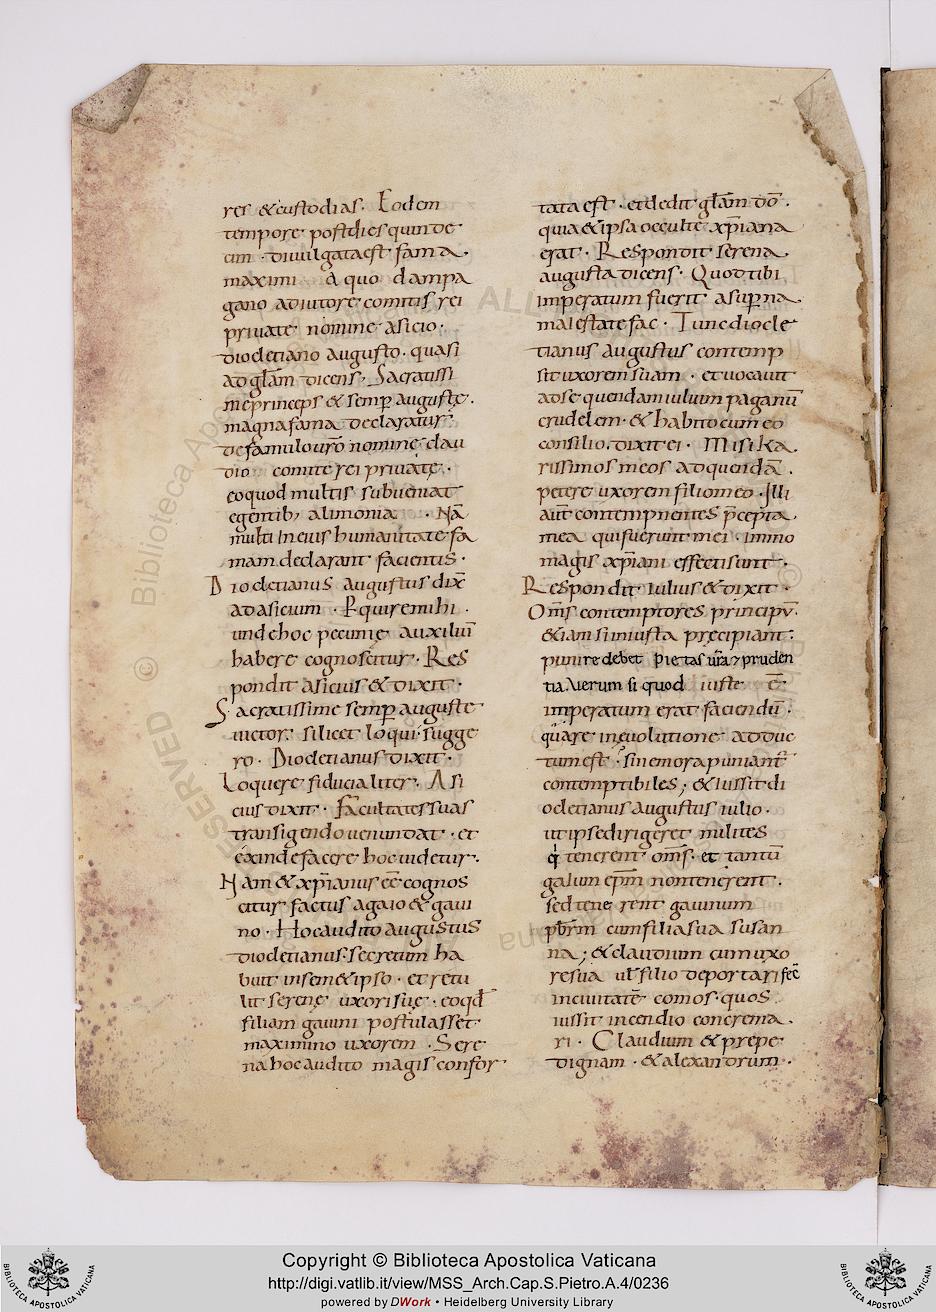 res & custodias. Eodem
tempore post dies quinde
cim · divulgata est fama.
maximi a quo dampa
gano adiutore comitis rei
privatę nomine asicio·
diocletiano augusto· quasi
ad głam dicens· Sacratissi
me princeps & semp auguste.
magna fama declaratur
de famulo uro nomine clau
dio comite rei privatę··
eo quod multis subueniat
egentib; alimonia · Nā
multi in eius humanitate fa
mam declarant facientis·
Diocletianus augustus dix̄
ad asicium · Requiremihi·
unde hoc pecunię auxiliū
habere cognoscitur· Res
pondit asicius & dixit·
Sacratissime semp auguste
uictor· silicet loqui· sugge
ro· Diocletianus dixit·
Loquere fiducialiter· Asi
cius dixit· Facultates suas
transigendo uenundat· et
exinde facere hoc uidetur·
Nam & xp̄ianus eē cognos
citur factus agaio & gaui
no· Hoc audito augustus
diocletianus· secretum ha
buit in sem& ipso· et retu
lit serenę uxori suę· eo qđ
filiam gauini postulasset
maximino uxorem· Sere
na hoc audito magis confor
tata est· et dedit głam dō·
quia & ipsa occulte xp̄iana
erat· Respondit serena
augusta dicens· Quod tibi
imperatum fuerit a sup̄na
maiestate fac· Tunc diocle
tianus augustus contemp
sit uxorem suam· et uocauit
ad se quendam iulium paganū
crudelem· & habito cum eo
consilio· dixit ei· Misi ka
rissimos meos ad quendā·
petere uxorem filio meo· Illi
aut̄ contempnentes p̄cepta
mea qui fuerunt mei· immo
magis xp̄iani effecti sunt·
Respondit iulius & dixit·
Oms̄ contemptores principū·
& iam si iniusta pręcipiant·
punire debet pietas ur̄a ⁊ pruden
tia. Uerum si quod iuste ē
imperatum erat faciendū·
quare in euolutione adduc
tum est· sine mora puniant̄
contemptibiles; & iussit di
ocletianus augustus iulio·
ut ipse dirigeret milites
q̇ tenerent om̄s· et tantū
gaium ep̄m non tenerent·
sed tenerent gauinum
pb̄rm cum filia sua susan
na; & claudium cum uxo
re sua ul̄ filio deportari fec̄
in ciuitatē comos· quos
iussit incendio concrema
ri· Claudium & prepe
dignam· & alexandrum·
Copyright © Biblioteca Apostolica Vaticana
http://digi.vatlib.it/view/MSS_Arch.Cap.S.Pietro.A.4/0236
powered by DWork • Heidelberg University Library